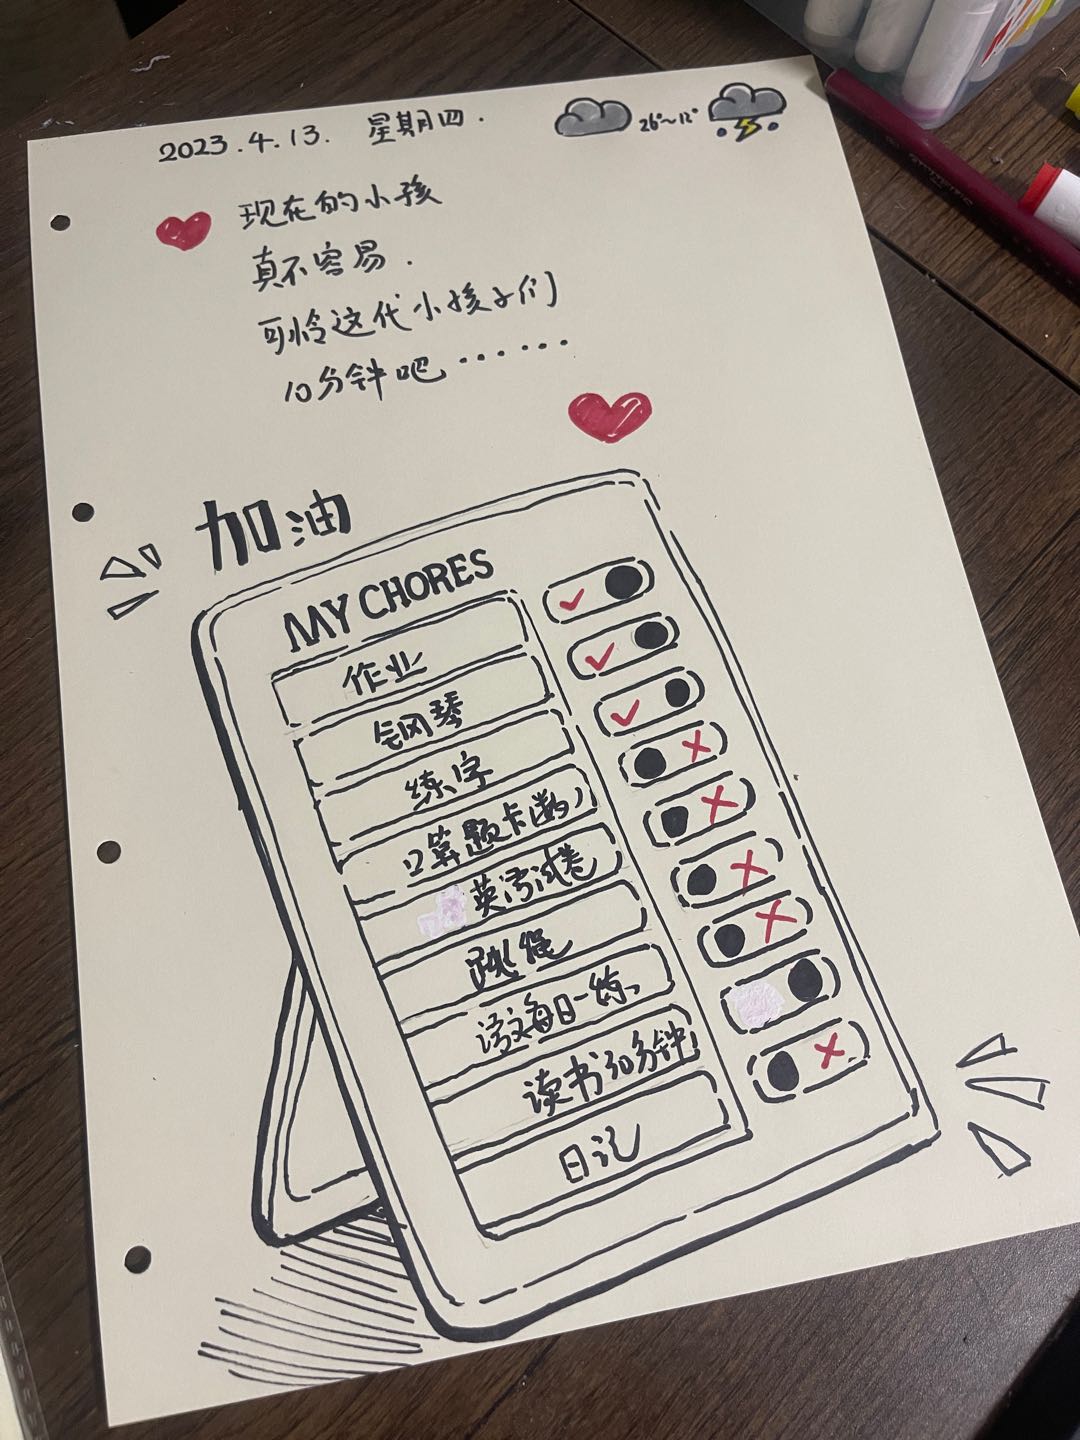 2023.4.13. 星期四.
26°~12°
现在的小孩
真不容易.
可怜这代小孩子们
10分钟吧......
加油
MY CHORES
作业
钢琴
练字
口算题卡(数)
英语试卷
跳绳
语文每日一练
读书30分钟!
日记